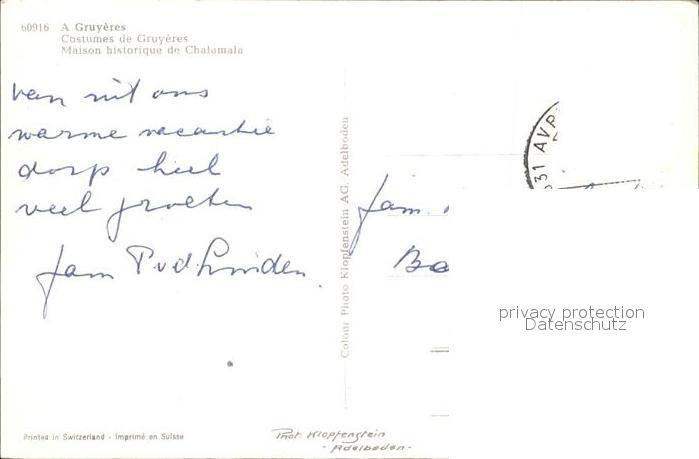 60916 A Gruyères
Costumes de Gruyères
Maison historique de Chalamala
van uit ons
warme vacantie
dorp heel
veel groeten
fam P v d
fam.
Colour Photo Klopfenstein AG. Adelboden
31 AVR
privacy protection
Datenschutz
Printed in Switzerland - Imprimé en Suisse
Phot. Klopfenstein
- Adelboden -